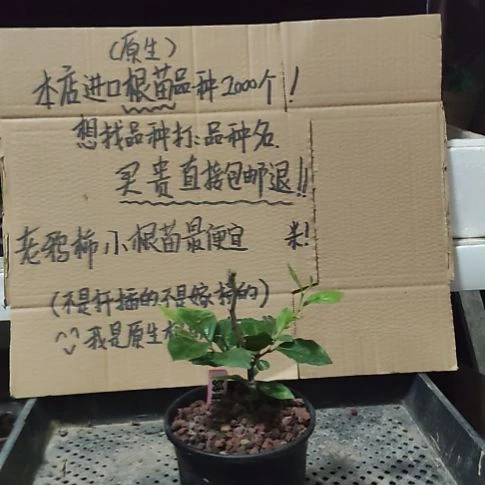 （原生）
本店进口根苗品种2000个！
想找品种打:品种名.
买贵直接包邮退!!
老鸦柿小根苗最便宜 来!
(不是扦插的不是嫁接的)
我是原生根